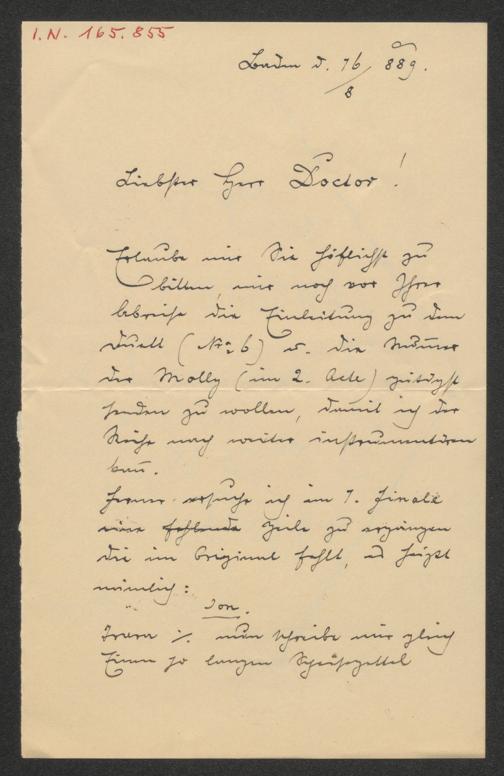 I.N. 165.855
Baden d. 16/8 889.
Liebster Herr Doctor!
Erlaube mir Sie höflichst zu
bitten, mir noch vor Ihrer
Abreise die Einleitung zu dem
Duett (No 6) u. die Nummer
der Molly (im 2. Acte) gütigst
senden zu wollen, damit ich der
Reihe nach weiter instrumentiren
kann.
Ferner ersuche ich im 1. Finale
eine fehlende Zeile zu ergänzen
die im Original fehlt, es heißt
nämlich:
Jon.
%. nun schreibe mir gleich
Einen so langen Speisezettel